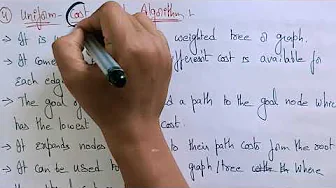 4) Uniform - Cost Algorithm :-
→ It is weighted tree & graph.
→ It come different cost is available for
each edge
→ The goal of a path to the goal node where
has the lowest cost.
→ It expands nodes to their path costs form the root
→ It can be used to graph/tree where